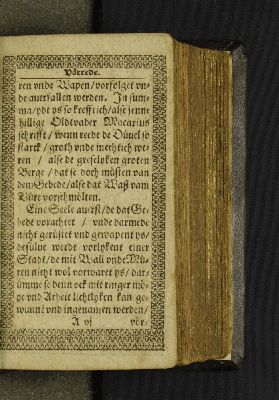 Vörrede.
ren vnde Wapen/vorfolget vn-
de auerfallen werden. In sum-
ma/ydt ys so krefftich/alse jenne
hillige Oldtvader Macarius
schrifft/wenn reede de Düuel so
starck / groth vnde mechtich we-
ren / alse de greselyken groten
Berge / dat se doch müsten van
dem Gebede/alse dat Waß vam
Vüre vorschmölten.
Eine Seele auerst/de dat Ge-
bedt vorachtet / vnde darmede
nicht gerüstet vnd gewapent ys/
desülue werdt vorlykent einer
Stadt/de mit Wall vnde Mü-
ren nicht wol vorwaret ys/dar-
ümme se denn ock mit ringer mö-
ye vnd Arbeit lichtlyken kan ge-
wunnē vnd ingenamen werden/
A vj vör-